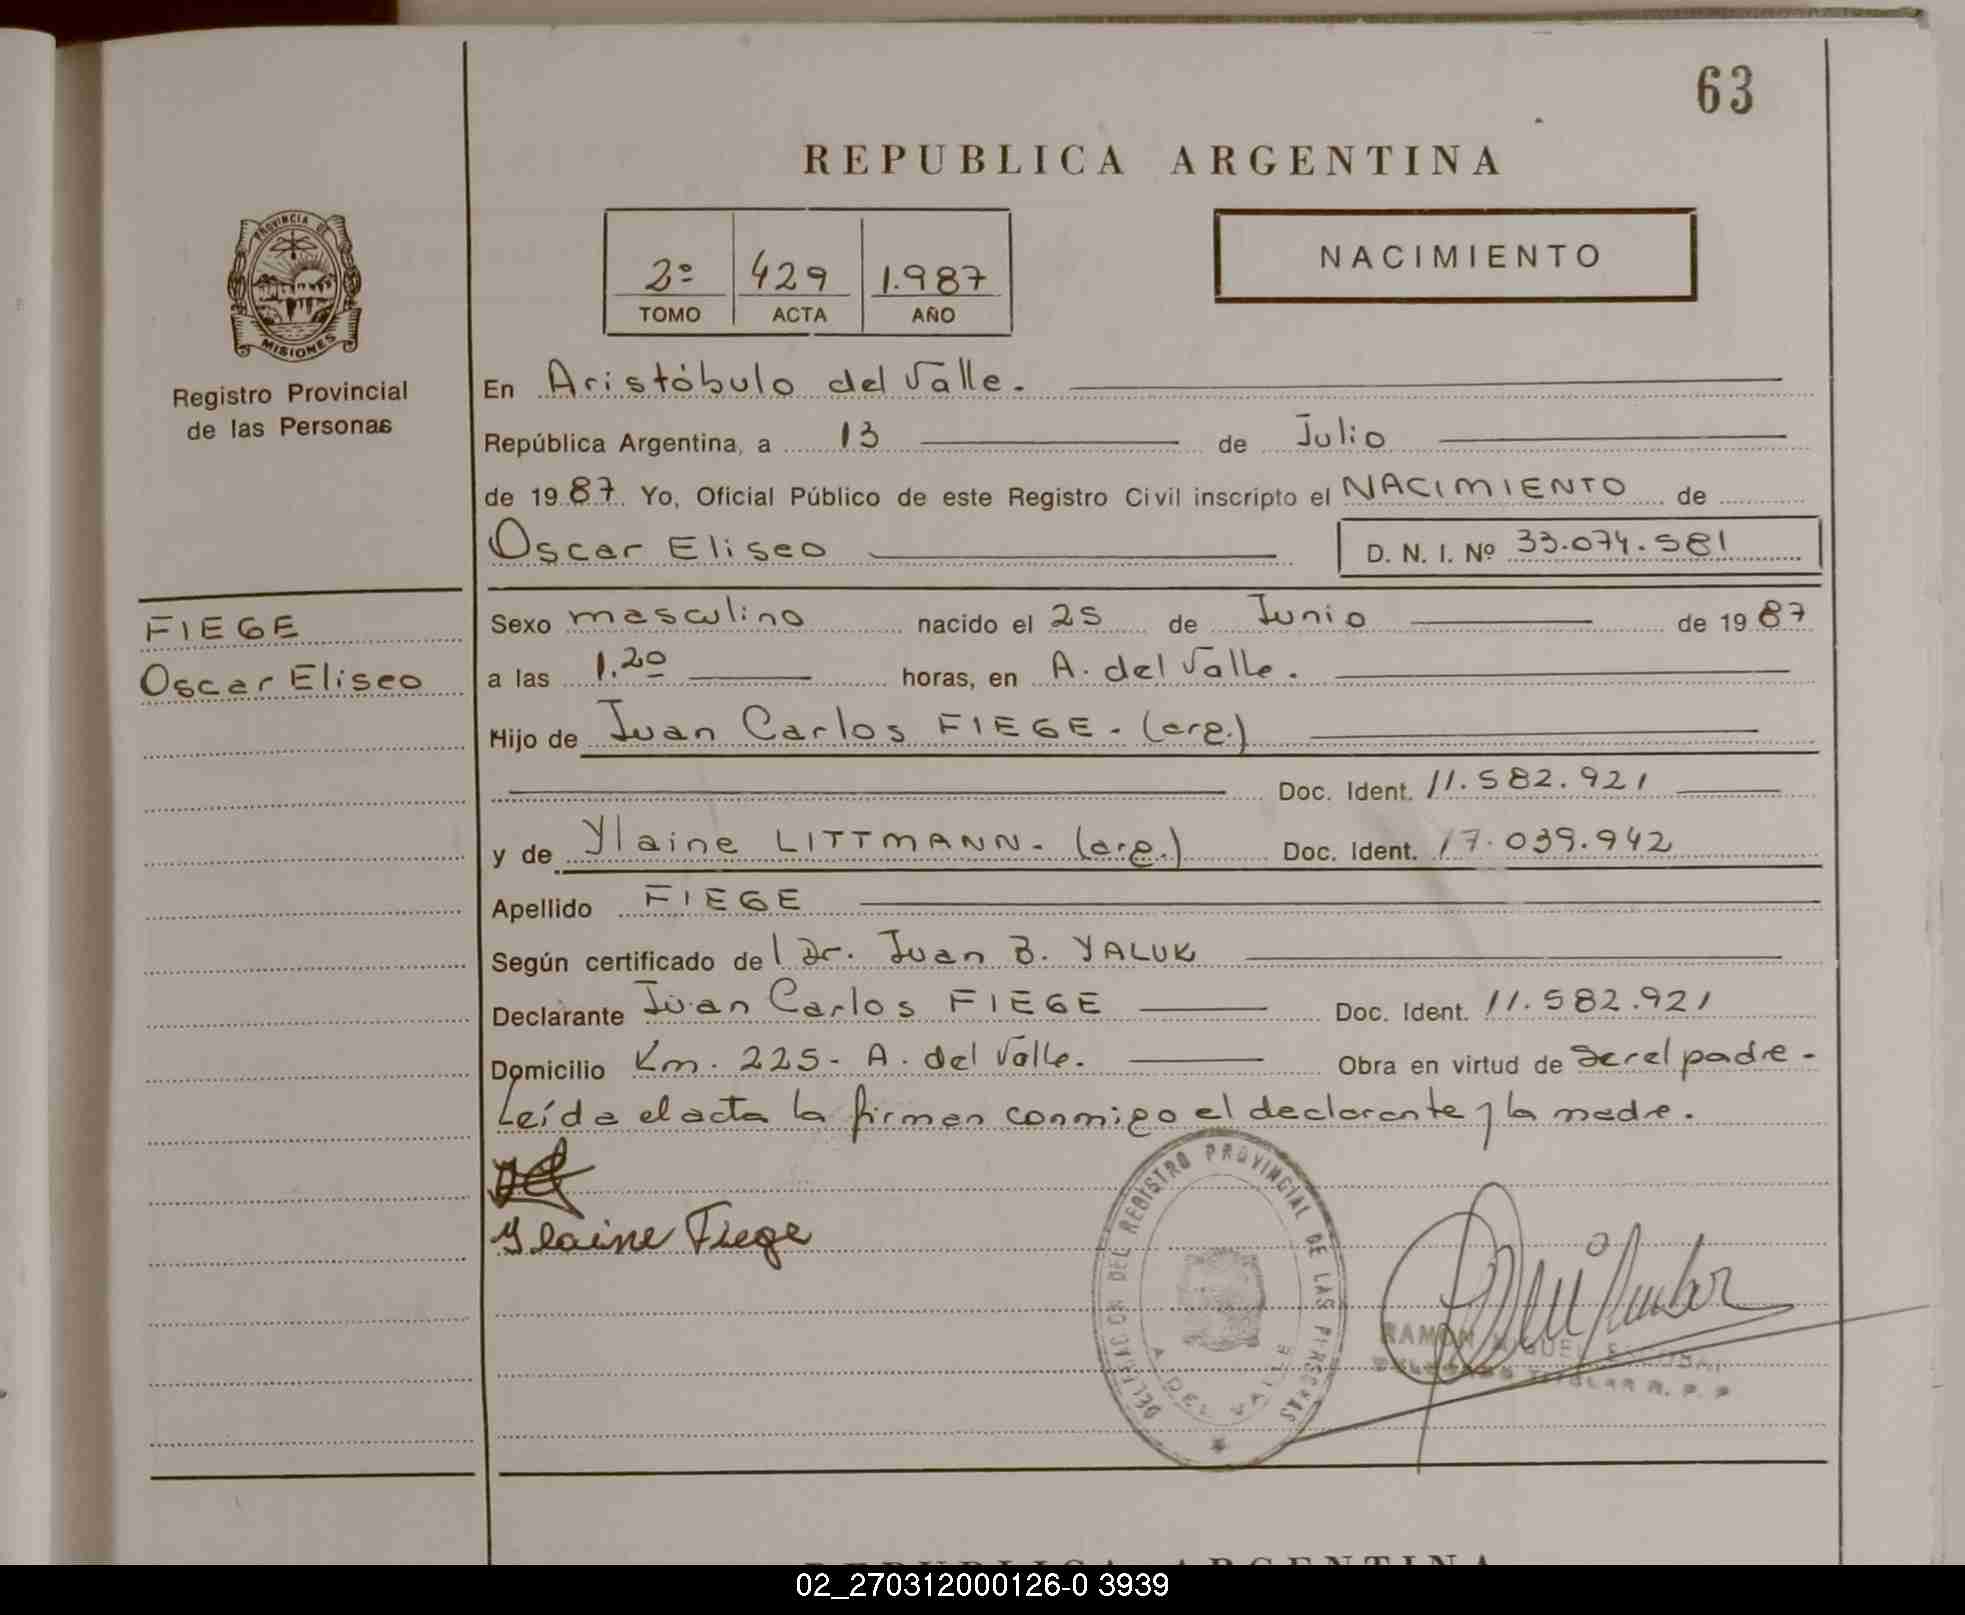 63
REPUBLICA ARGENTINA
PROVINCIA DE
MISIONES
Registro Provincial
de las Personas
2º 429 1.987
TOMO ACTA AÑO
NACIMIENTO
En Aristóbulo del Valle.
República Argentina, a 13 de Julio
de 1987. Yo, Oficial Público de este Registro Civil inscripto el NACIMIENTO de
Oscar Eliseo D. N. I. Nº 33.074.581
FIEGE
Oscar Eliseo
Sexo masculino nacido el 25 de Junio de 1987
a las 1.20 horas, en A. del Valle.
Hijo de Juan Carlos FIEGE. (arg.)
Doc. Ident. 11.582.921
y de Ylaine LITTMANN. (arg.) Doc. Ident. 17.039.942
Apellido FIEGE
Según certificado del Dr. Juan B. YALUK
Declarante Juan Carlos FIEGE Doc. Ident. 11.582.921
Domicilio Km. 225- A. del Valle. Obra en virtud de ser el padre.
Leída el acta la firman conmigo el declarante y la madre.
Ylaine Fiege
DELEGACION DEL REGISTRO PROVINCIAL DE LAS PERSONAS
A. DEL VALLE
RAMON MIGUEL ESCOBAR
DELEGADO TITULAR R. P. P
REPUBLICA ARGENTINA
02_270312000126-0 3939